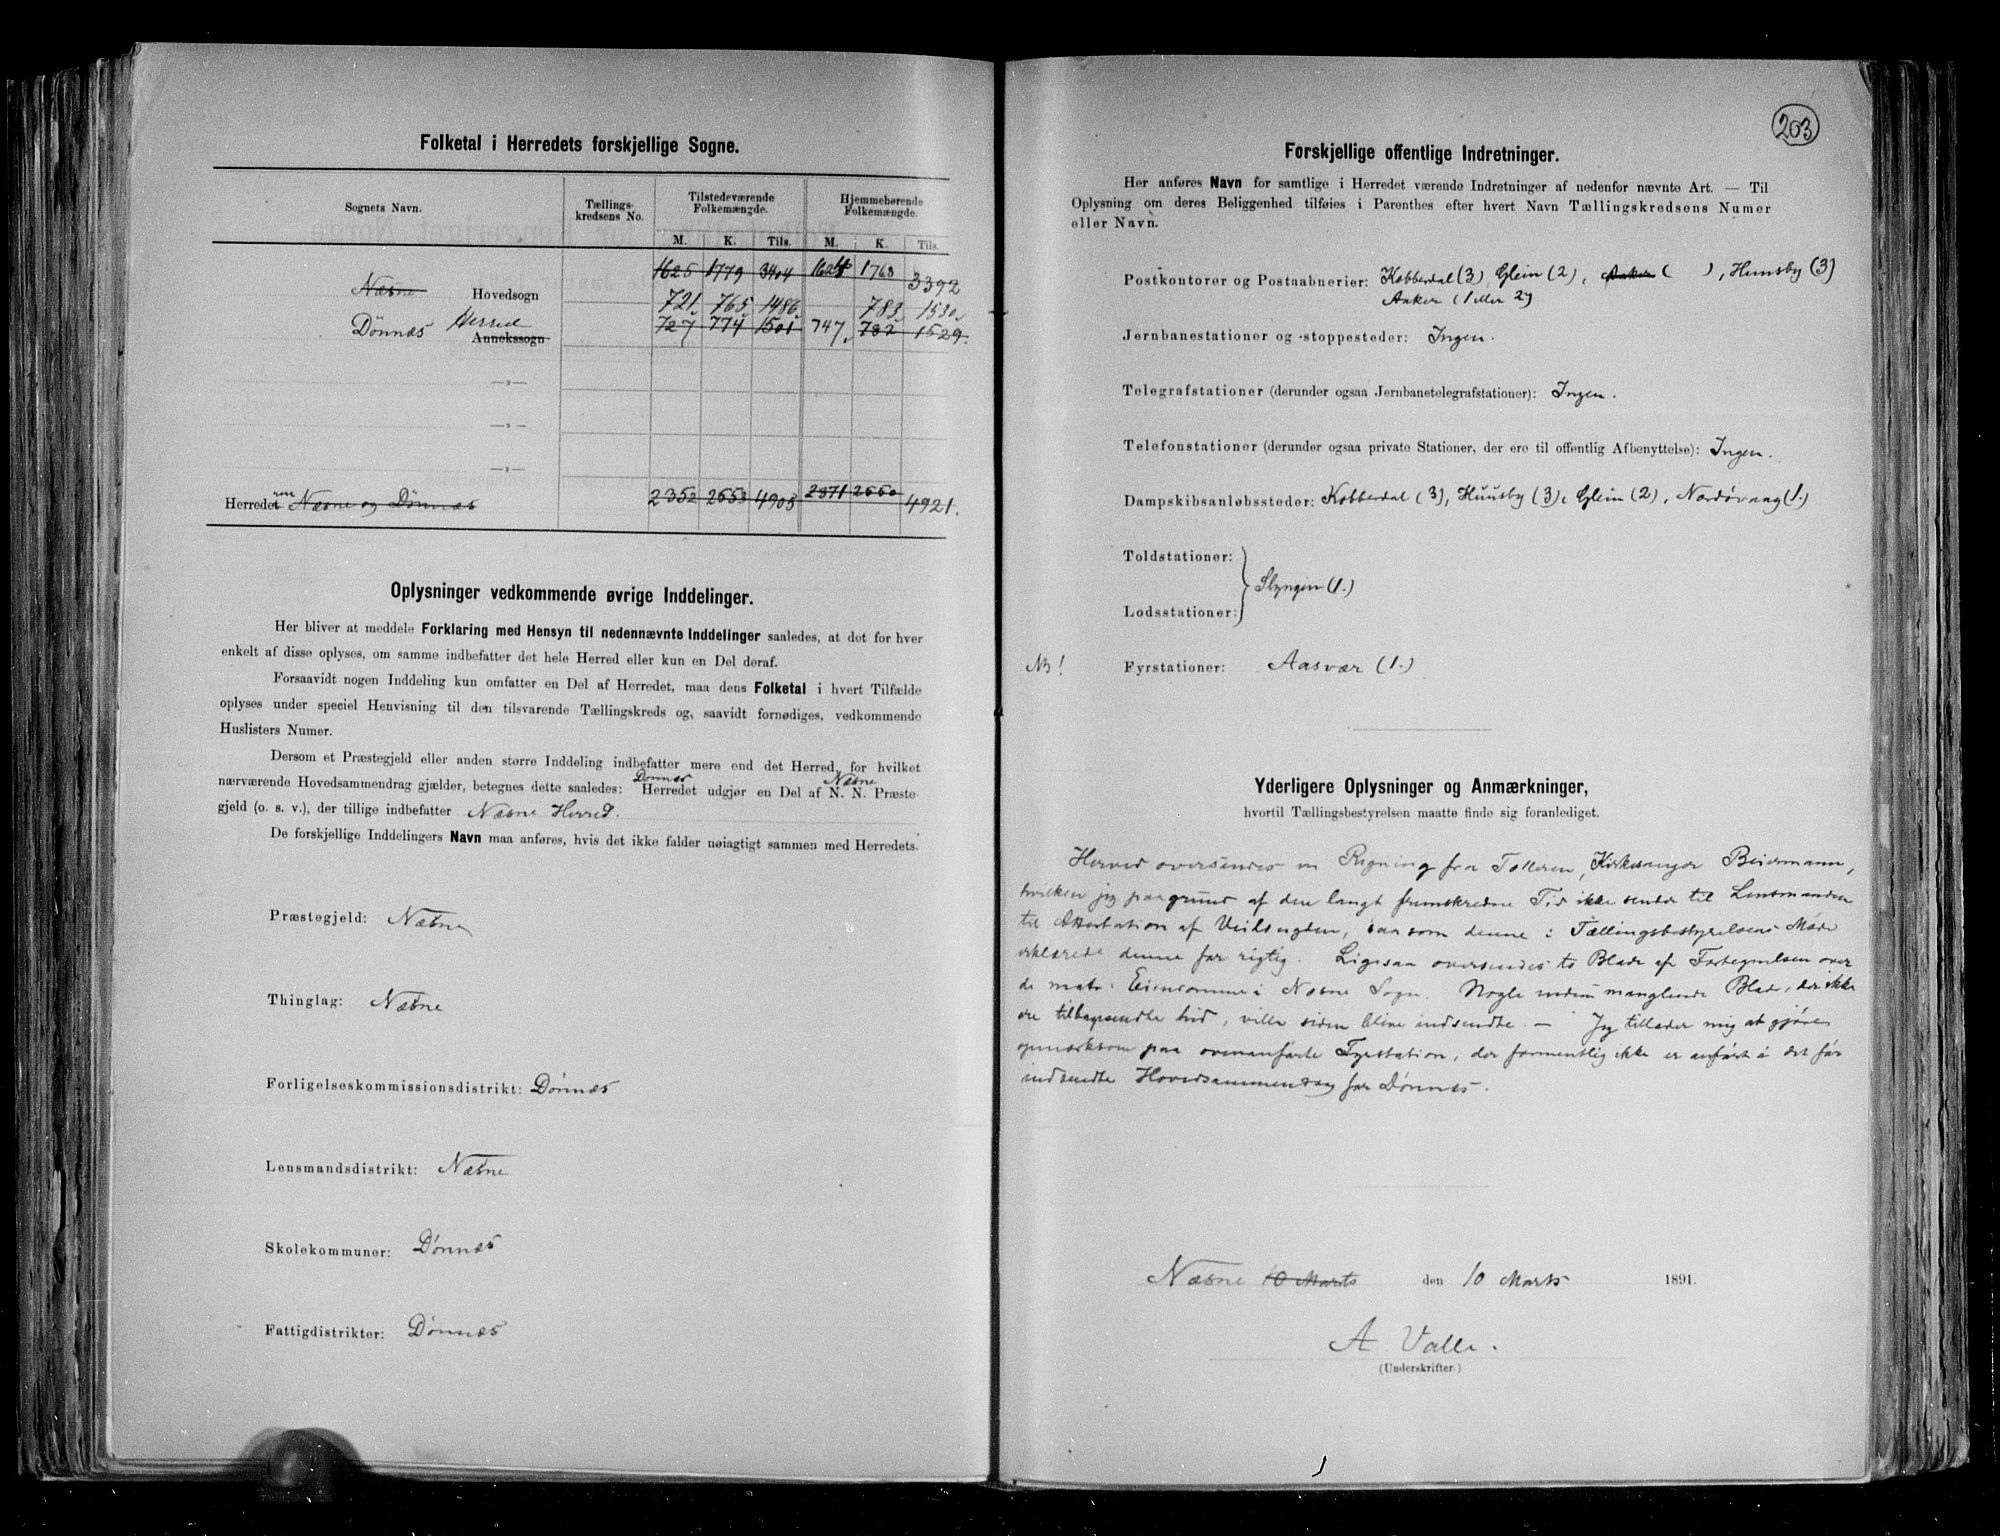 Folketal i Herredets forskjellige Sogne.
Sognets Navn.
Tællings-
kredsens No.
Tilstedeværende
Folkemængde.
Hjemmehørende
Folkemængde.
M. K. Tils. M. K. Tils.
1625 1779 3404 1624 1768 3392
Næsne Hovedsogn
721 765 1486 783 1530
Dønnæs Herred Annekssogn 727 774 1501 747 782 1529.
—»—
—»—
—»—
Herredet Næsne og Dønnæs 2352 2553 4905 2371 2550 4921.
Oplysninger vedkommende øvrige Inddelinger.
Her bliver at meddele Forklaring med Hensyn til nedennævnte Inddelinger saaledes, at det for hver
enkelt af disse oplyses, om samme indbefatter det hele Herred eller kun en Del deraf.
Forsaavidt nogen Inddeling kun omfatter en Del af Herredet, maa dens Folketal i hvert Tilfælde
oplyses under speciel Henvisning til den tilsvarende Tællingskreds og, saavidt fornødiges, vedkommende
Huslisters Numer.
Dersom et Præstegjeld eller anden større Inddeling indbefatter mere end det Herred, for hvilket
Dønnæs Næsne
nærværende Hovedsammendrag gjælder, betegnes dette saaledes: Herredet udgjør en Del af N. N. Præste-
gjeld (o. s. v.), der tillige indbefatter Næsne Herred.
De forskjellige Inddelingers Navn maa anføres, hvis det ikke falder nøiagtigt sammen med Herredets.
Præstegjeld: Næsne
Thinglag: Næsne
Forligelseskommissionsdistrikt: Dønnæs
Lensmandsdistrikt: Næsne
Skolekommuner: Dønnæs
Fattigdistrikter: Dønnæs
203
Forskjellige offentlige Indretninger.
Her anføres Navn for samtlige i Herredet værende Indretninger af nedenfor nævnte Art. — Til
Oplysning om deres Beliggenhed tilføies i Parenthes efter hvert Navn Tællingskredsens Numer
eller Navn.
Postkontorer og Postaabnerier: Kobberdal (3), Glein (2), Aaker ( ), Huusby (3)
Aaker (1 eller 2)
Jernbanestationer og -stoppesteder: Ingen.
Telegrafstationer (derunder ogsaa Jernbanetelegrafstationer): Ingen.
Telefonstationer (derunder ogsaa private Stationer, der ere til offentlig Afbenyttelse): Ingen.
Dampskibsanløbssteder: Kobberdal (3), Huusby (3), Glein (2), Nordøvaag (1.)
Toldstationer:
Slyngen (1.)
Lodsstationer:
NB! Fyrstationer: Aasvær (1.)
Yderligere Oplysninger og Anmærkninger,
hvortil Tællingsbestyrelsen maatte finde sig foranlediget.
Herved oversendes en Regning fra Tælleren, Kirkesanger Beiermann,
hvilken jeg paagrund af den langt fremskredne Tid ikke sender til Lensmanden
til Attestation af Veilængden, saasom denne i Tællingsbestyrelsens Møde
erklærede denne for rigtig. Ligesaa oversendes to Blade af Fortegnelsen over
de matr. Eiendomme i Næsne Sogn. Nogle endnu manglende Blade, der ikke
ere tilbagesendte hid, ville siden blive indsendte. — Jeg tillader mig at gjøre
opmærksom paa ovenanførte Fyrstation, der formentlig ikke er anført i det før
indsendte Hovedsammendrag for Dønnæs.
Næsne 10 Marts den 10 Marts 1891.
A. Valle.
(Underskrifter.)